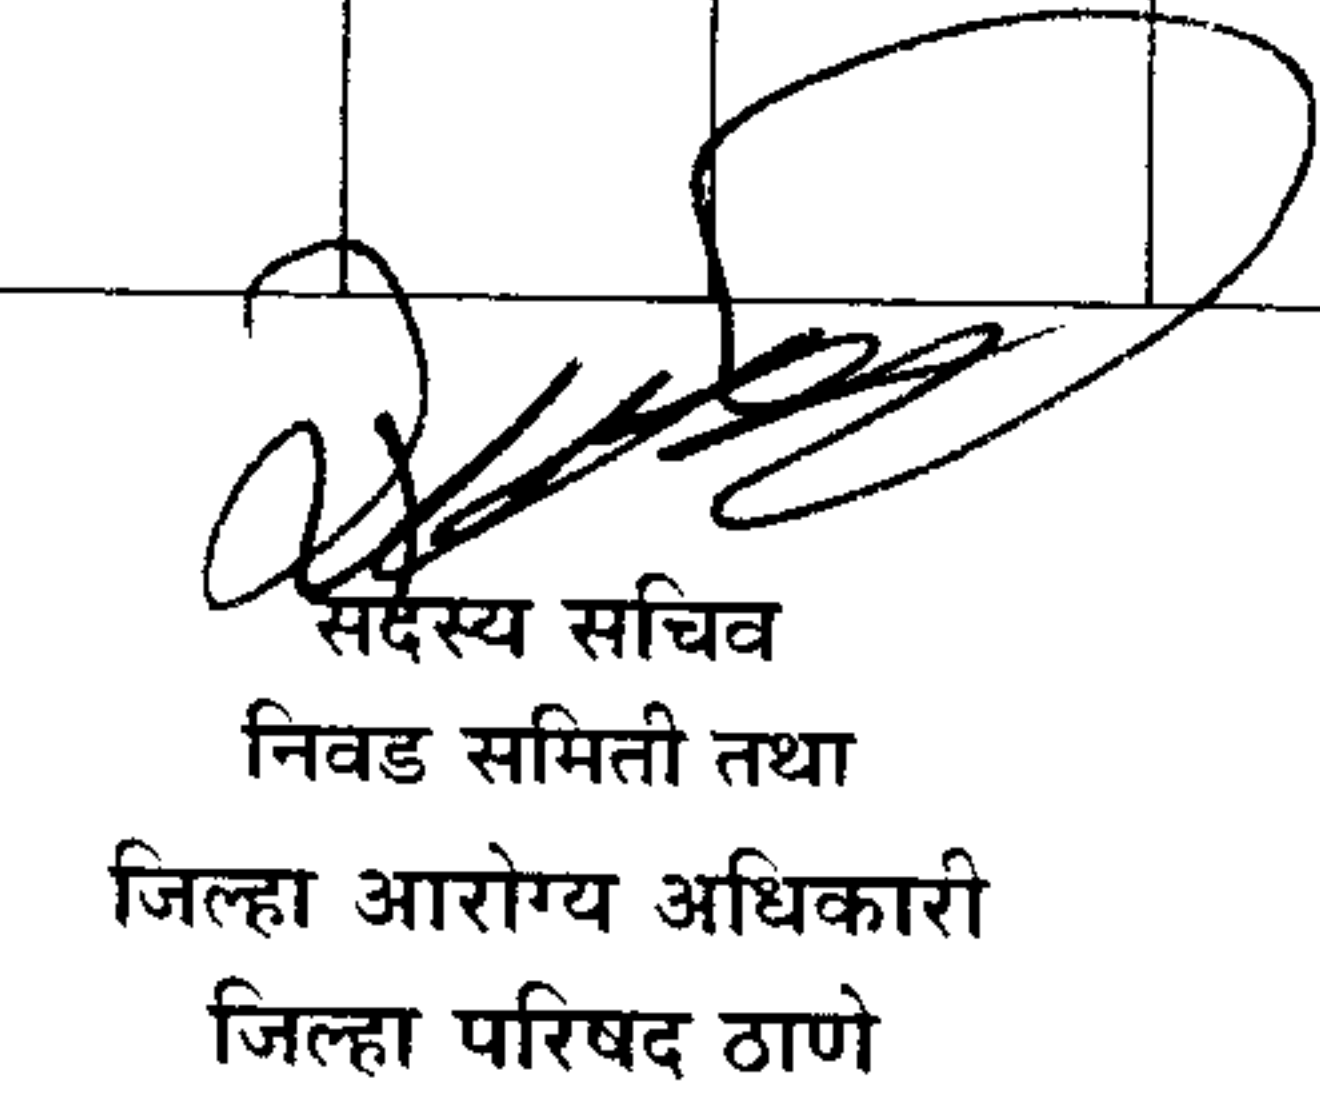 सदस्य सचिव
निवड समिती तथा
जिल्हा आरोग्य अधिकारी
जिल्हा परिषद ठाणे